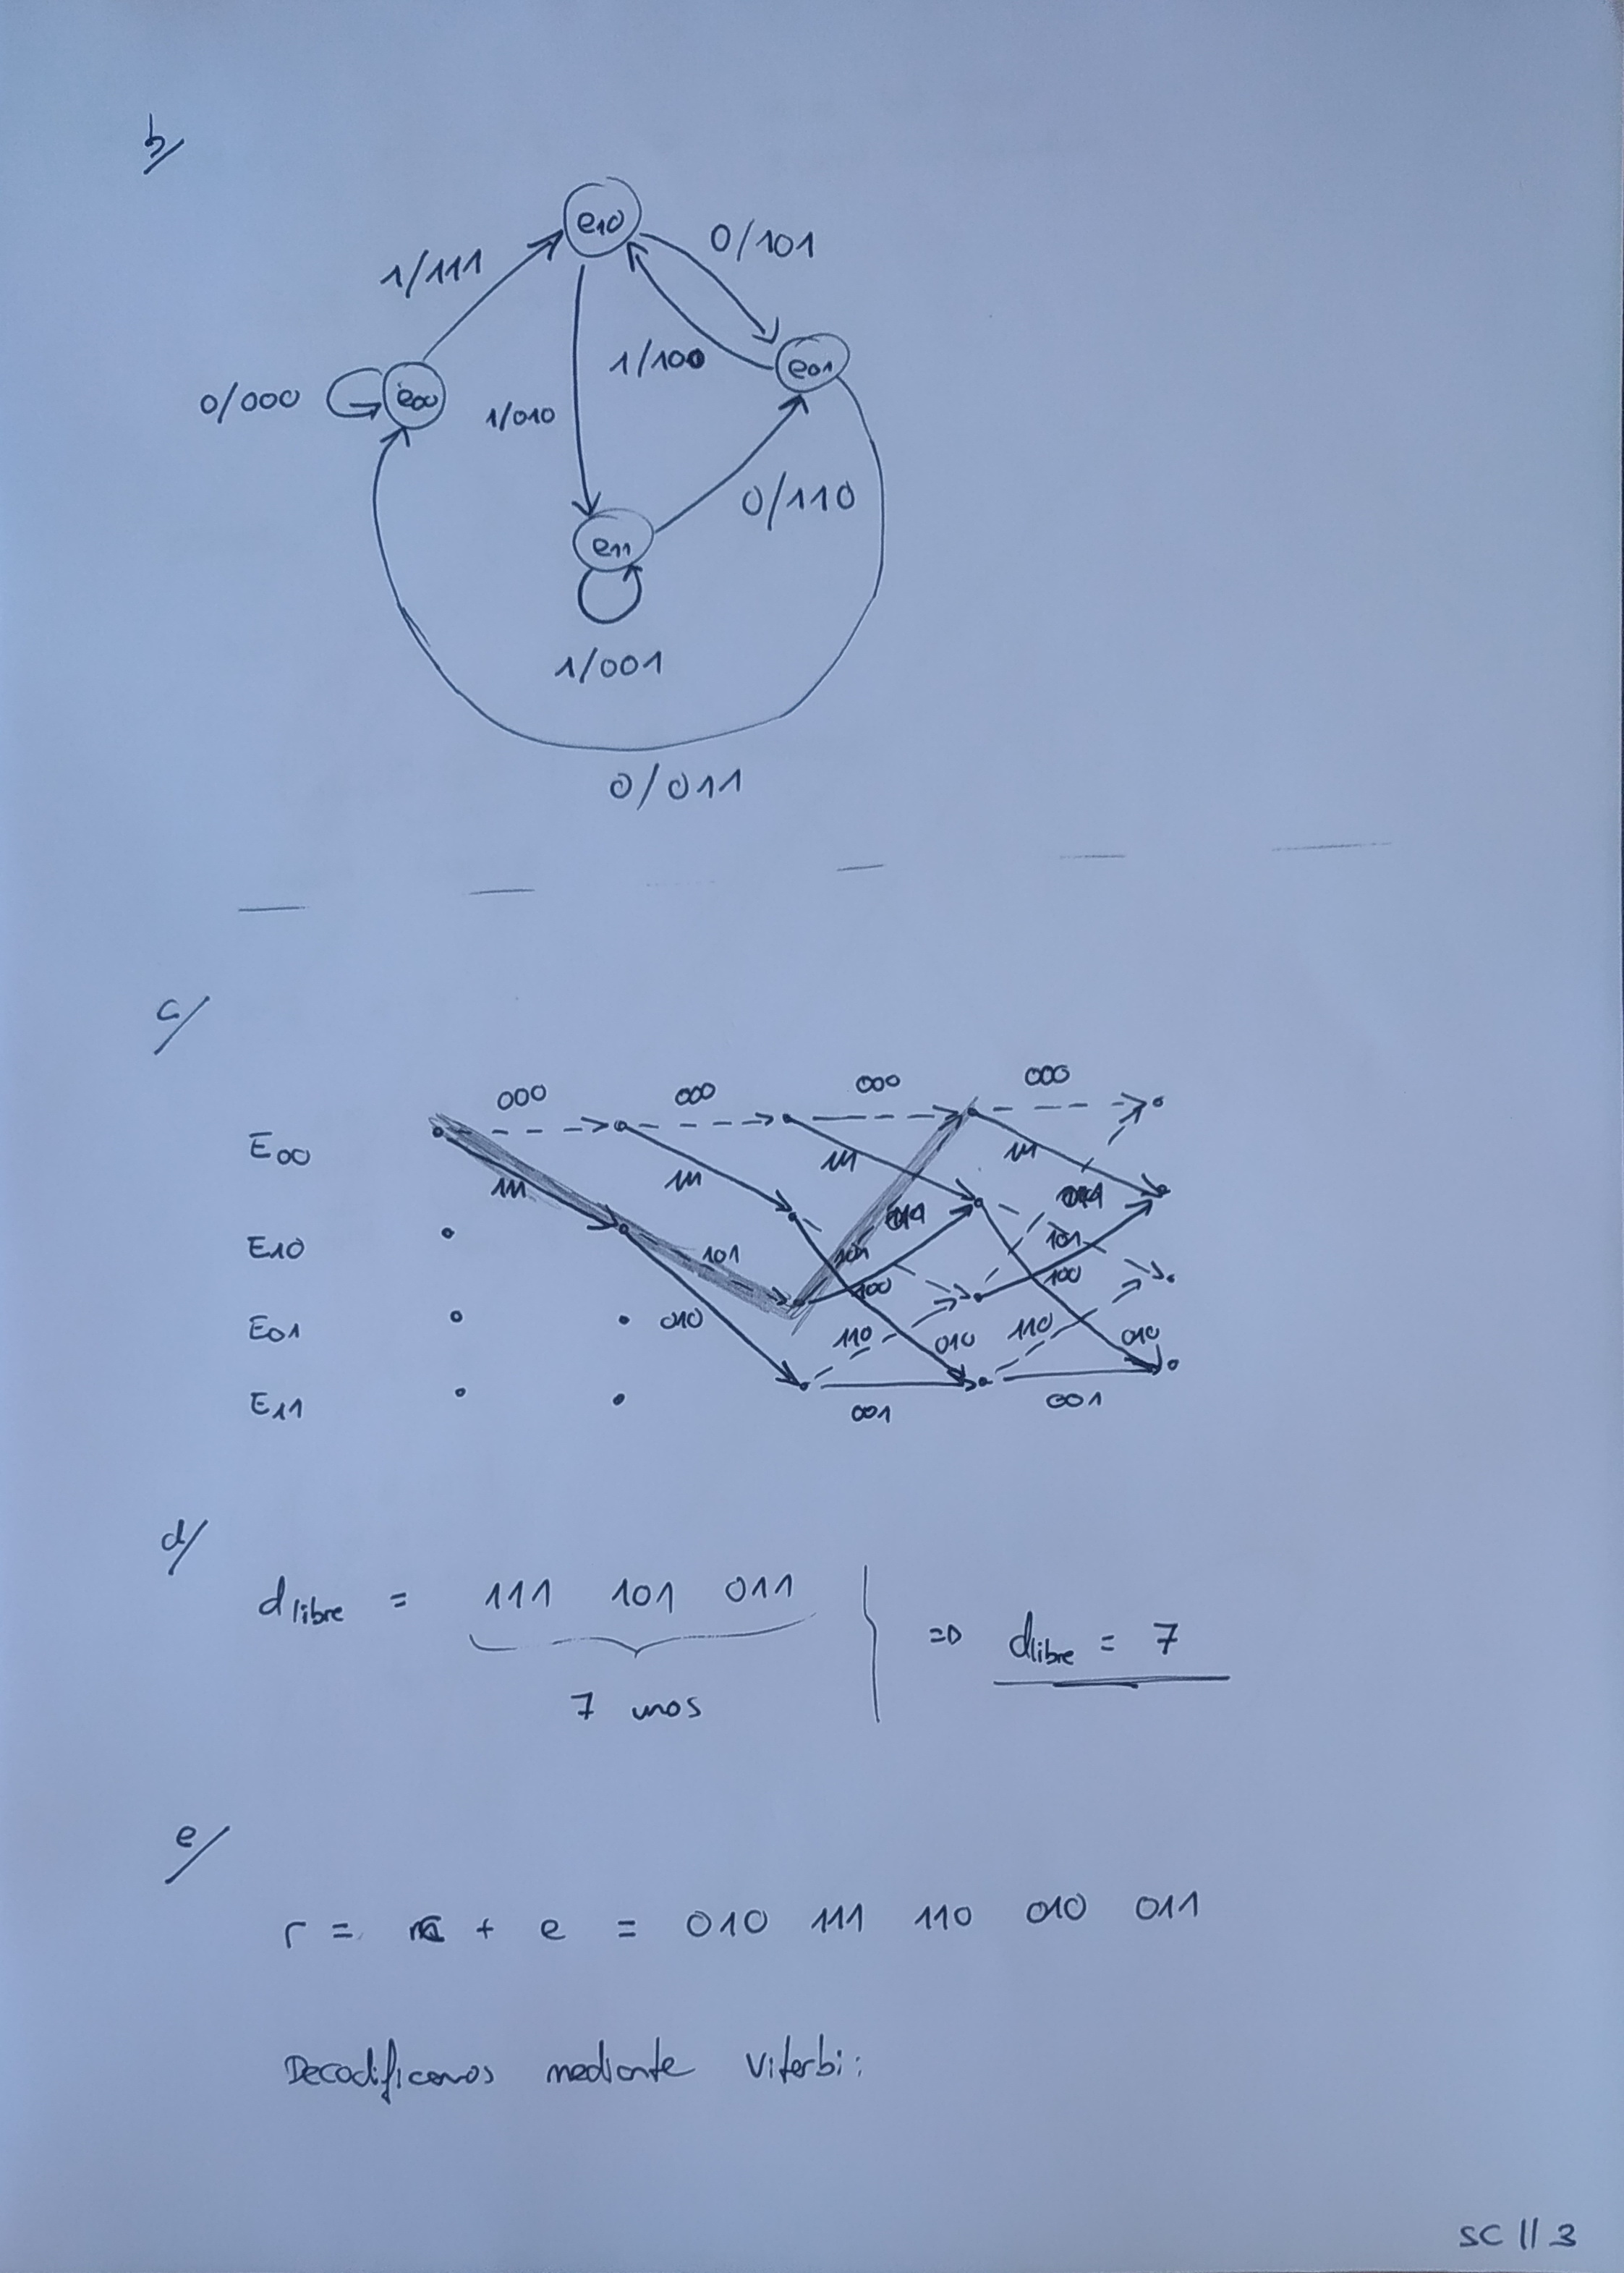 b/
e10
0/101
1/111
1/100
e01
0/000
e00
1/010
0/110
e11
1/001
0/011
c/
000 000 000 000
E00
111 111 111 111
E10
101 101 011 101 011
100 100
E01
010 110 010 110 010
E11
001 001
d/
dlibre = 111 101 011
=> dlibre = 7
7 unos
e/
r = c + e = 010 111 110 010 011
Decodificamos mediante Viterbi:
SC || 3